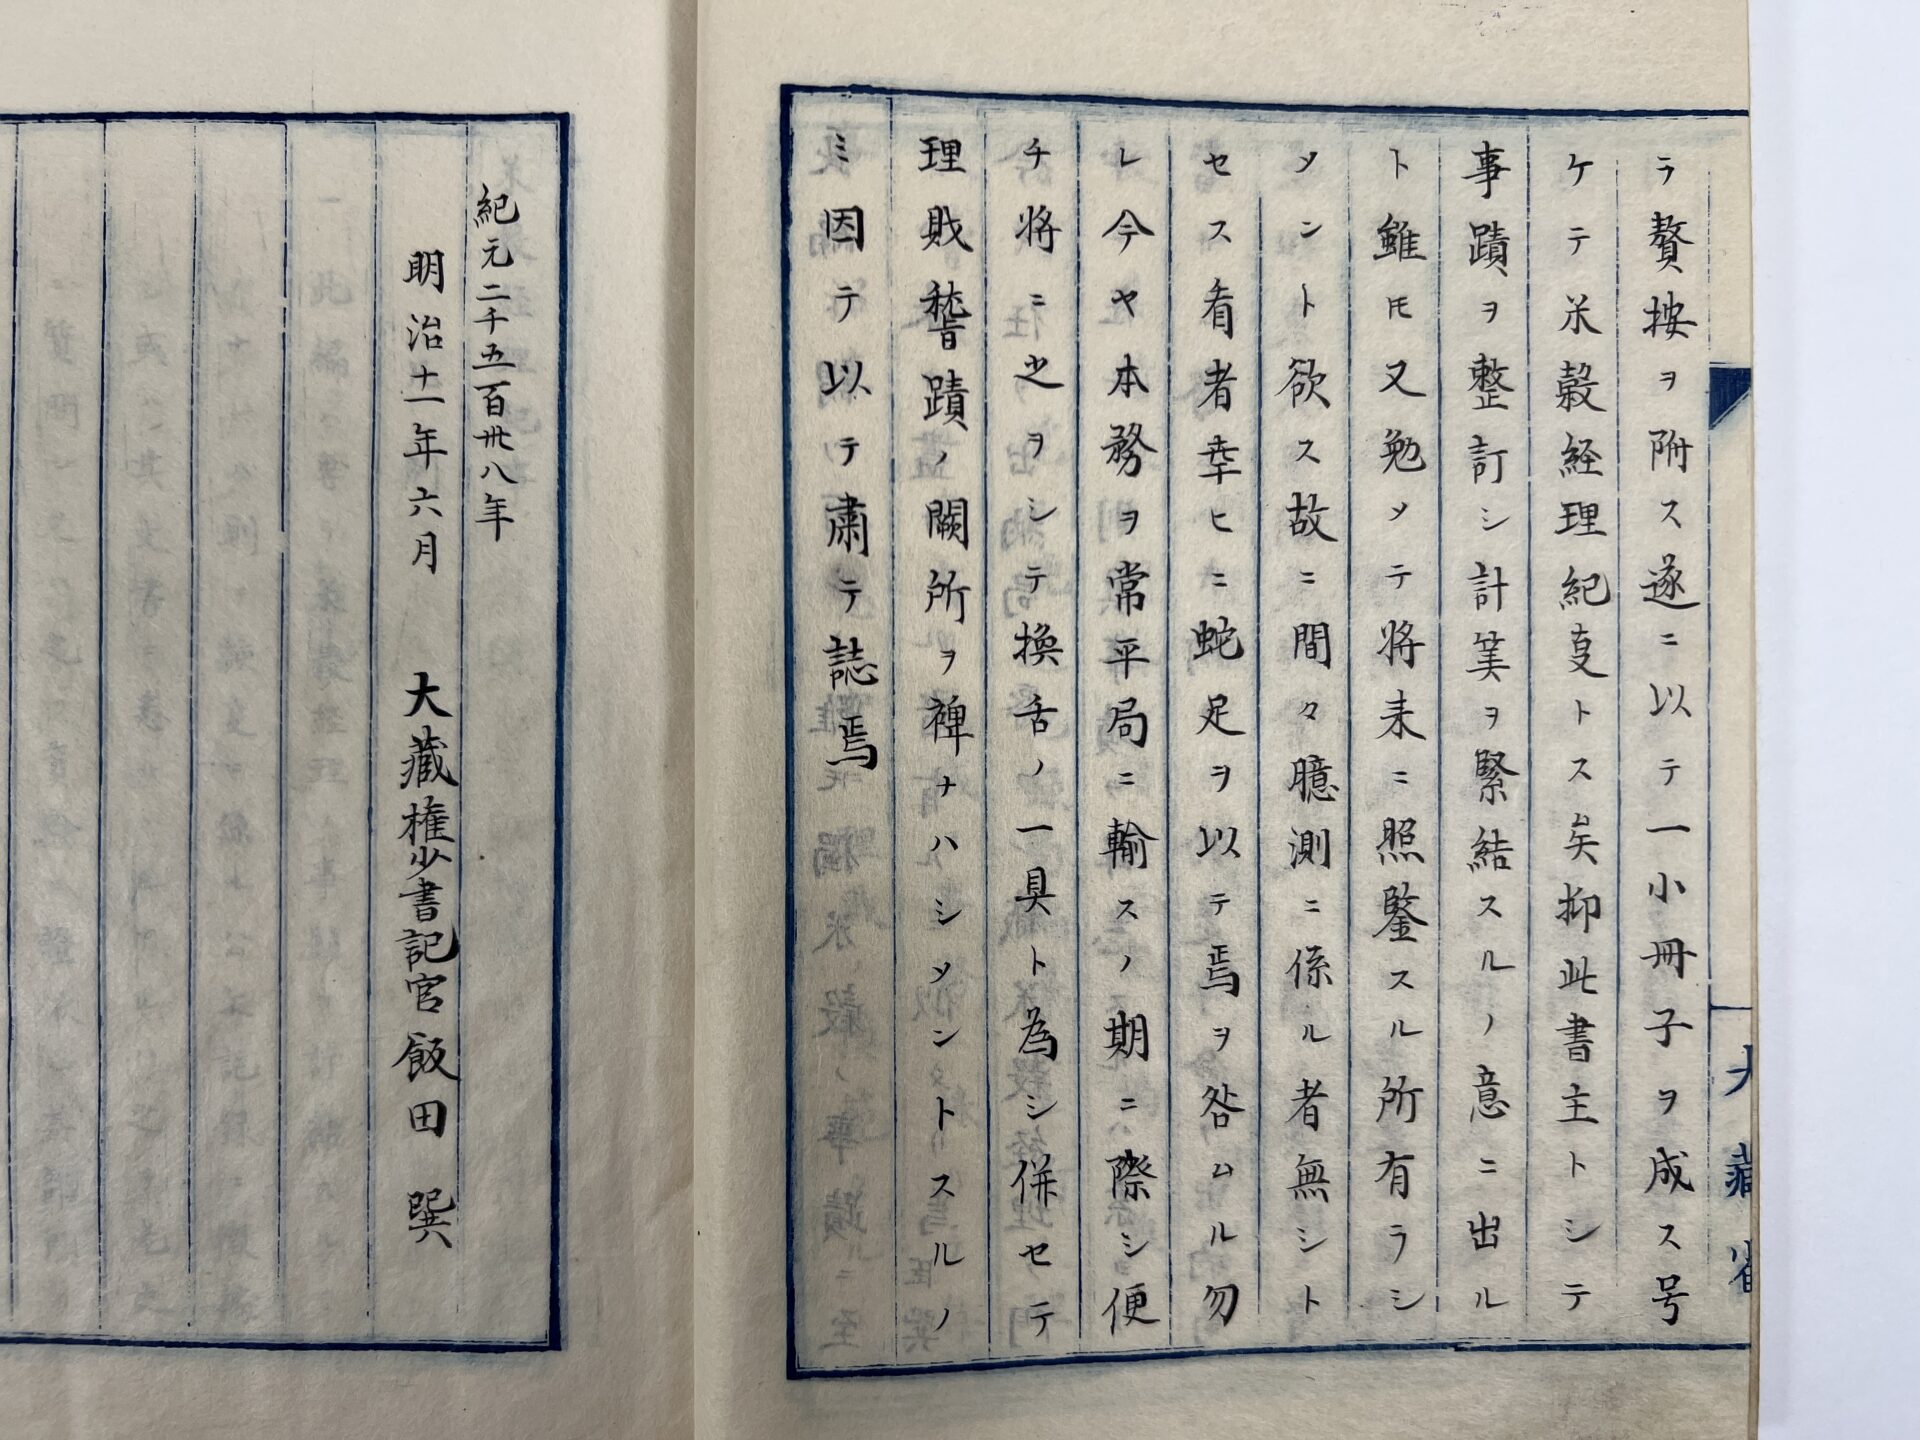 ラ贅按ヲ附ス遂ニ以テ一小冊子ヲ成ス号
ケテ米穀経理紀事トス矣抑此書主トシテ
事蹟ヲ整訂シ計筭ヲ緊結スルノ意ニ出ル
ト雖モ又勉メテ将来ニ照鑒スル所有ラシ
メント欲ス故ニ間々臆測ニ係ル者無シト
セス看者幸ヒニ蛇足ヲ以テ焉ヲ咎ムル勿
レ今ヤ本務ヲ常平局ニ輸スノ期ニ際シ便
チ将ニ之ヲシテ換舌ノ一具ト為シ併セテ
理財稽蹟ノ闕所ヲ裨ナハシメンタトスルノ
ミ因テ以テ粛テ誌焉
紀元二千五百卅八年
明治十一年六月 大藏権少書記官飯田 巽
大藏省